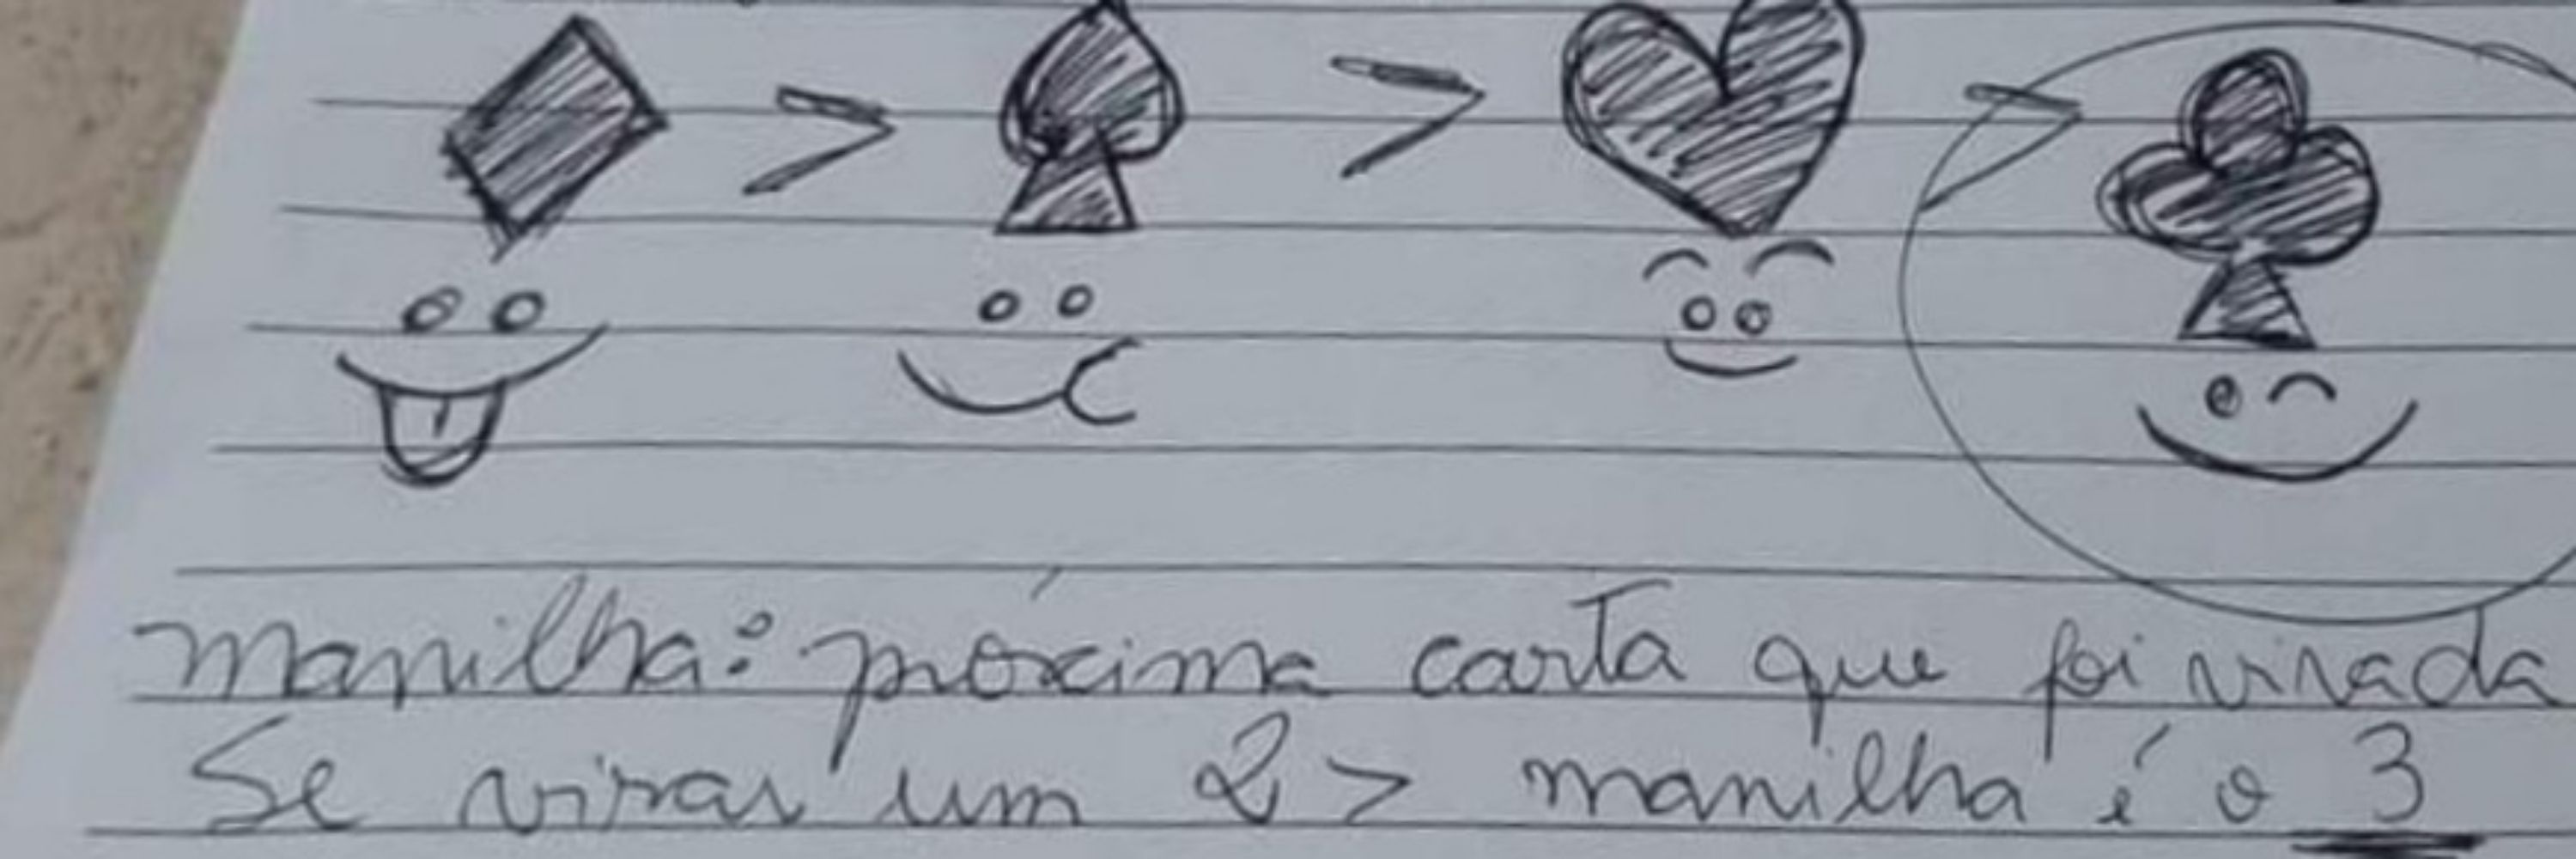 > > >
manilha: próxima carta que foi virada
Se virar um 2 > manilha é o 3